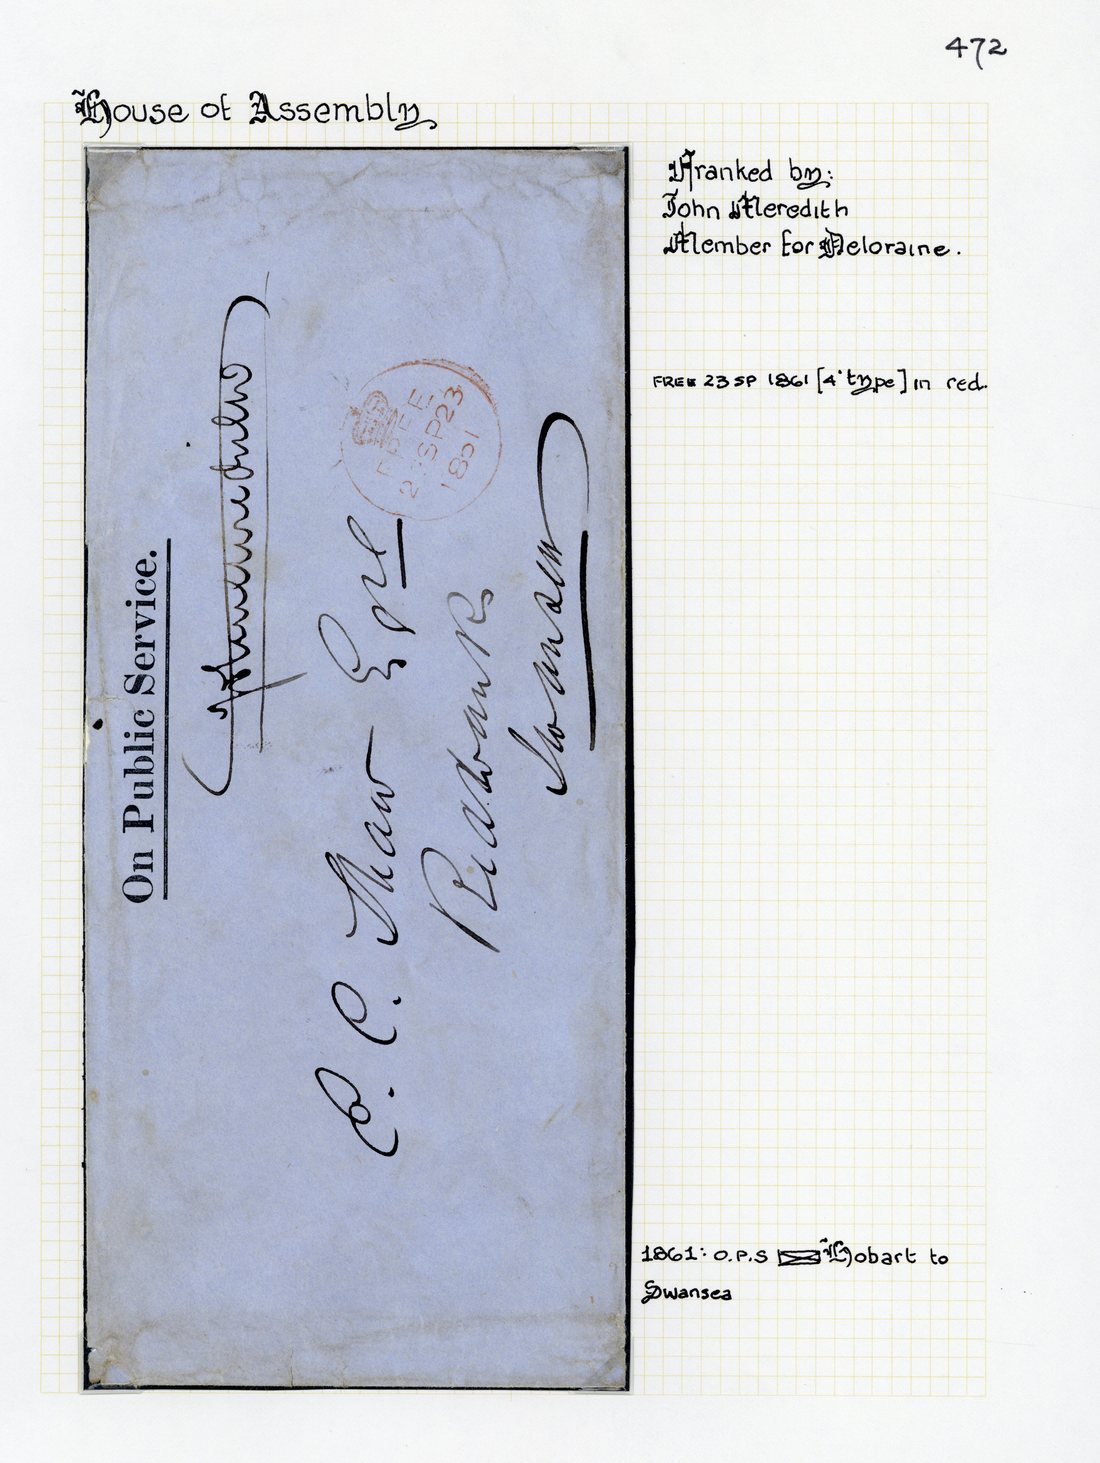 472
House of Assembly
Franked by:
John Meredith
Member for Deloraine.
FREE 23 SP 1861 [4' type] in red.
On Public Service.
FREE
2 SP 23
1861
E. C. Shaw Esqre
Redbanks
Swansea
1861: O.P.S Hobart to
Swansea